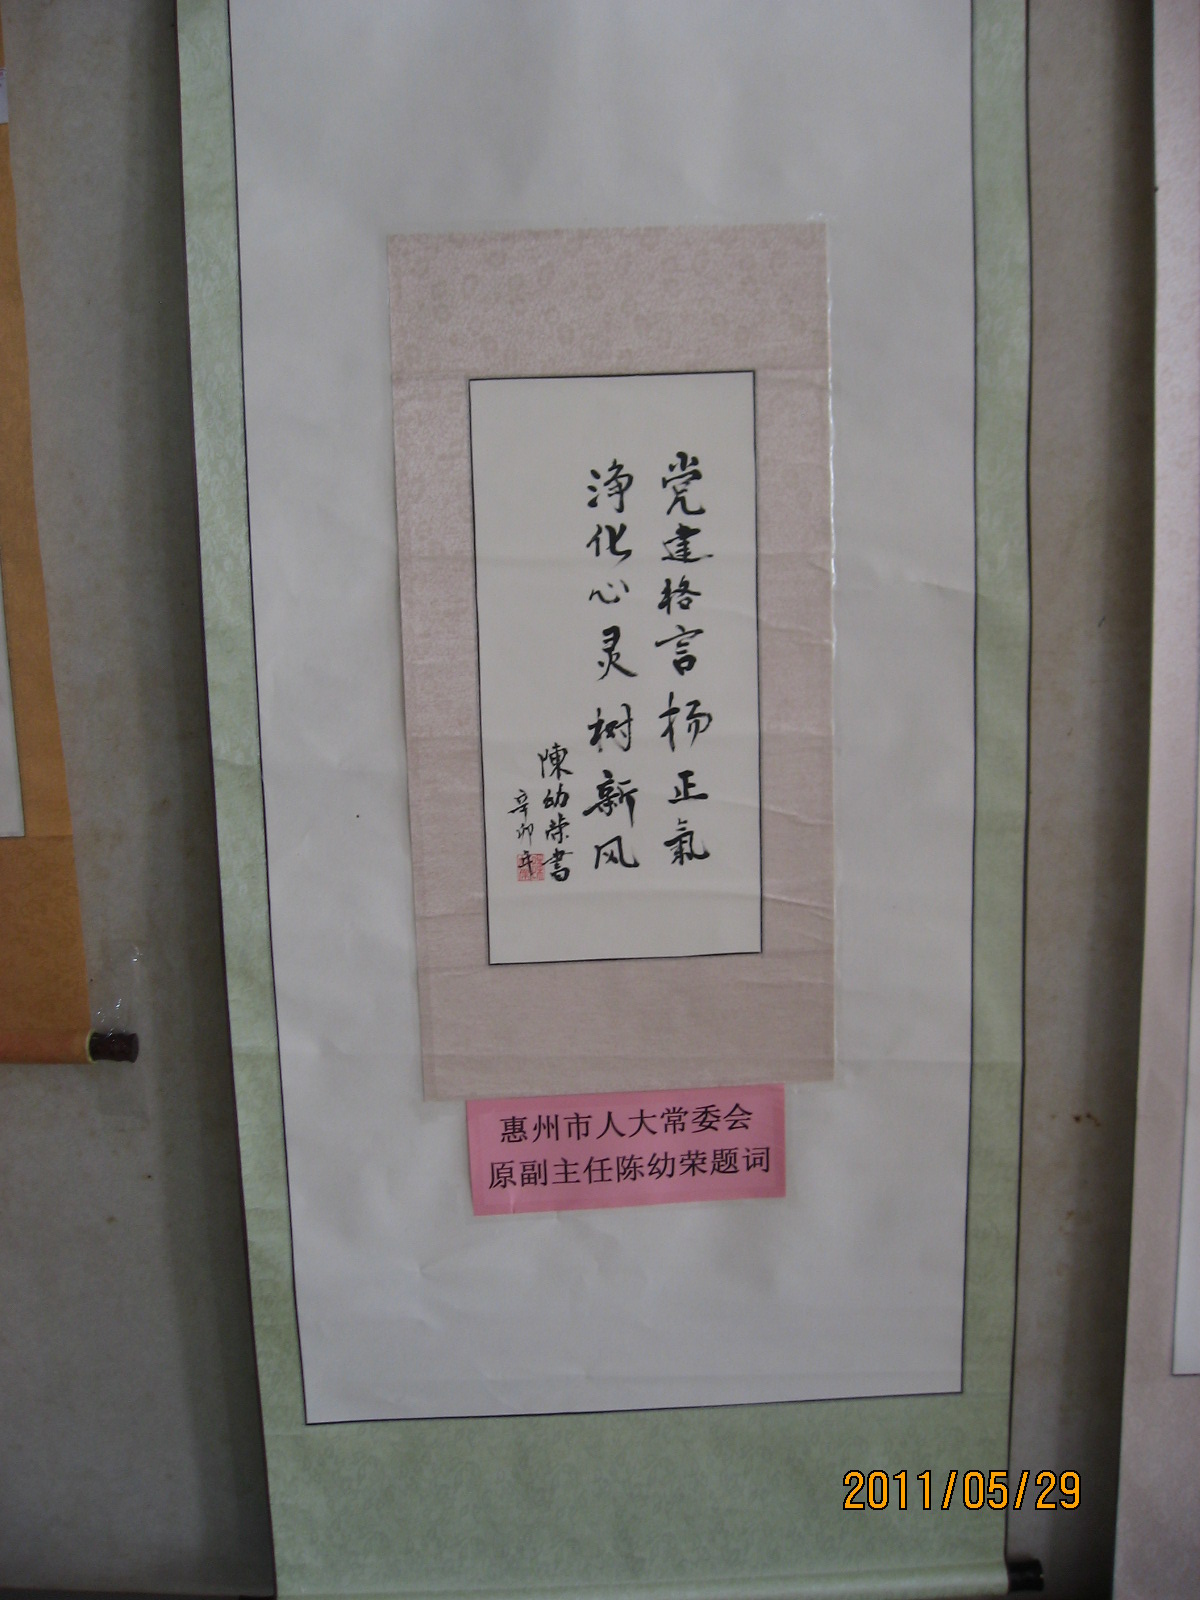 党建格言扬正氣
净化心灵树新风
陳幼荣書
辛卯年
惠州市人大常委会
原副主任陈幼荣题词
2011/05/29